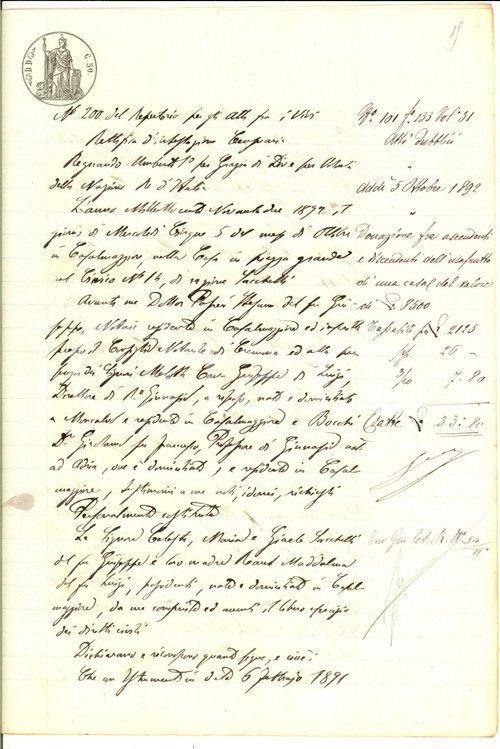 15
C. 50.
N° 200 del Repertorio per gli Atti fra i Vivi
Rettifica d'intestazione Censuaria
Regnando Umberto I° per Grazia di Dio e per Volontà
della Nazione Re d'Italia
L'anno Milleottocento Novantadue 1892, il
giorno di Mercoledì Cinque 5 del mese di Ottobre
in Casalmaggiore nella Casa in piazza grande
al Civico N° 14, di ragione Sacchetti
Avanti me Dottor del fu Giu-
seppe, Notaio residente in Casalmaggiore ed inscritto
presso il Consiglio Notarile di Cremona ed alla pre-
senza dei Signori Cav. Giuseppe di Luigi,
Direttore di R° Ginnasio, nato e domiciliato
a e residente in Casalmaggiore e Bocchi
Dr Gaetano fu Francesco, Professore di Ginnasio nato
ad Adria, ove è domiciliato, e residente in Casal-
maggiore, testimoni a me noti, idonei, richiesti
Personalmente costituite
Le Signore Maria e Sacchetti
del fu Giuseppe e loro madre Maddalena
del fu Luigi, possidenti, nate e domiciliate in Casal-
maggiore, da me conosciute ed aventi il libero esercizio
dei diritti civili
Dichiarano e riconoscono quanto segue, e cioè:
Che con Istrumento in data 6 febbraio 1891
N°. 101 f° 133 Vol. 31
Atti Pubblici
addì 5 Ottobre 1892
Donazione fra ascendenti
e discendenti dell'usufrutto
di una casa del valore
di £ 8500
Tassato per £ 21 25
25 -
2/10 7. 80
Esatte £ 33: 80